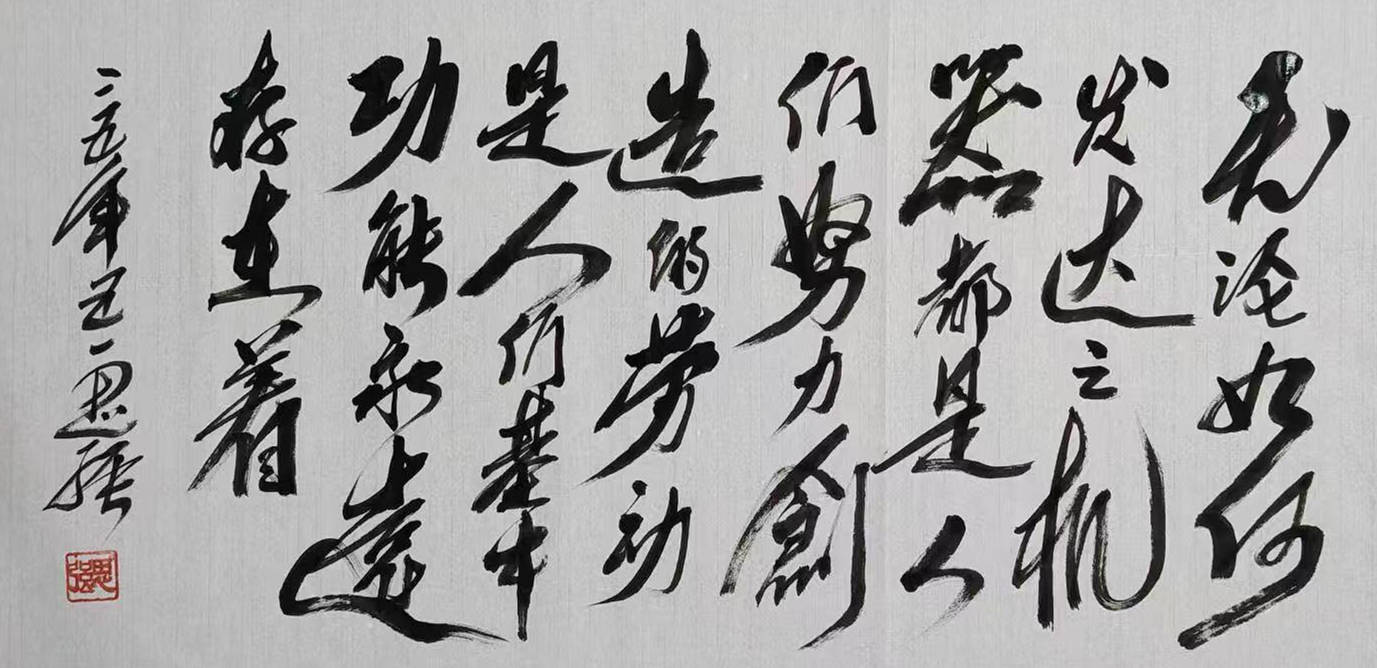 无论如何
发达之机
器都是人
们努力創
造的劳动
是人们基本
功能永遠
存在着
二五年五一思强